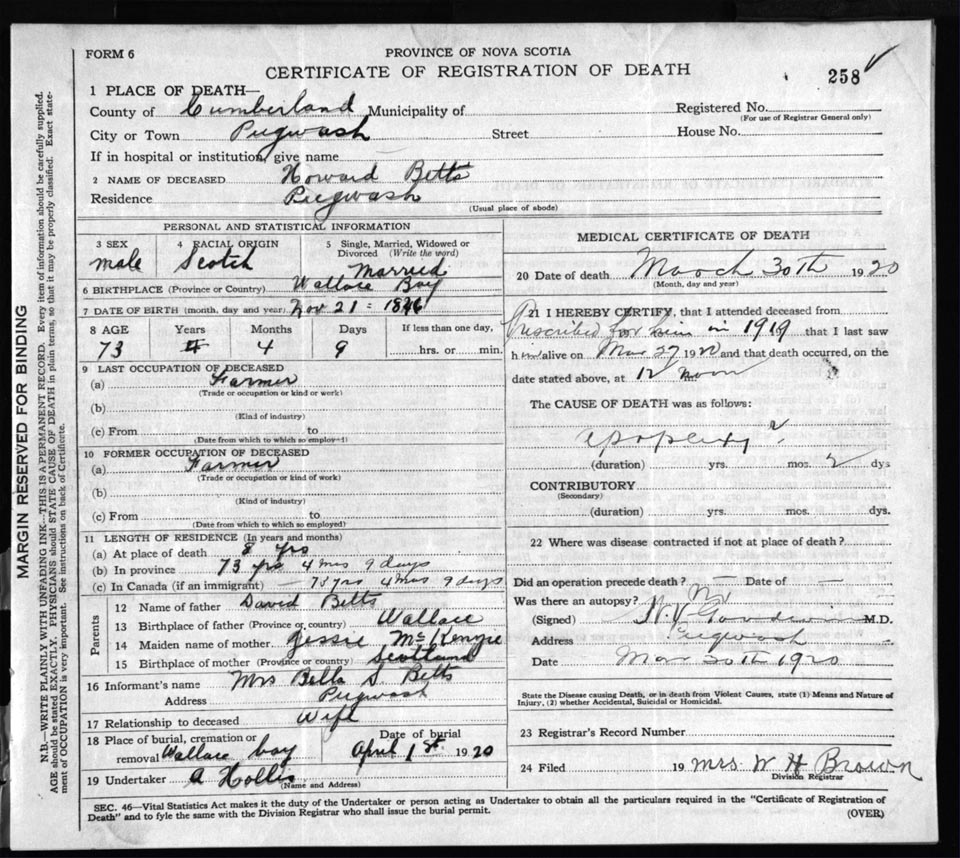 FORM 6
PROVINCE OF NOVA SCOTIA
CERTIFICATE OF REGISTRATION OF DEATH
258
1 PLACE OF DEATH—
County of Cumberland Municipality of
Registered No.
(For use of Registrar General only)
City or Town Pugwash Street House No.
If in hospital or institution, give name
2 NAME OF DECEASED Howard Betts
Residence Pugwash
(Usual place of abode)
PERSONAL AND STATISTICAL INFORMATION
3 SEX 4 RACIAL ORIGIN 5 Single, Married, Widowed or Divorced (Write the word)
male Scotch Married
6 BIRTHPLACE (Province or Country) Wallace Bay
7 DATE OF BIRTH (month, day and year) Nov 21 = 1846
8 AGE Years Months Days If less than one day,
73 4 4 9 hrs. or min.
9 LAST OCCUPATION OF DECEASED
(a) Farmer
(Trade or occupation or kind or work)
(b)
(Kind of industry)
(c) From to
(Date from which to which so employed)
10 FORMER OCCUPATION OF DECEASED
(a) Farmer
(Trade or occupation or kind of work)
(b)
(Kind of industry)
(c) From to
(Date from which to which so employed)
11 LENGTH OF RESIDENCE (In years and months)
(a) At place of death 8 yrs
(b) In province 73 yrs 4 mos 9 days
(c) In Canada (if an immigrant) — 73 yrs 4 mos 9 days
Parents
12 Name of father David Betts
13 Birthplace of father (Province or country) Wallace
14 Maiden name of mother Jessie McKenzie
15 Birthplace of mother (Province or country) Scotland
16 Informant's name Mrs Bella S. Betts
Address Pugwash
17 Relationship to deceased Wife
18 Place of burial, cremation or removal Wallace bay Date of burial April 1st 1920
19 Undertaker A Hollis
(Name and Address)
MEDICAL CERTIFICATE OF DEATH
20 Date of death March 30th 1920
(Month, day and year)
21 I HEREBY CERTIFY, that I attended deceased from
Prescribed for him in 1919 that I last saw
him alive on Mar 27 1920 and that death occurred, on the
date stated above, at 12 noon
The CAUSE OF DEATH was as follows:
apoplexy ?
(duration) yrs. mos. 2 dys
CONTRIBUTORY
(Secondary)
(duration) yrs. mos. dys.
22 Where was disease contracted if not at place of death?
Did an operation precede death? — Date of —
Was there an autopsy? No
(Signed) M.D.
Address Pugwash
Date Mar 30th 1920
State the Disease causing Death, or in death from Violent Causes, state (1) Means and Nature of
Injury, (2) whether Accidental, Suicidal or Homicidal.
23 Registrar's Record Number
24 Filed 19 Mrs W H Brown
Division Registrar
SEC. 46—Vital Statistics Act makes it the duty of the Undertaker or person acting as Undertaker to obtain all the particulars required in the "Certificate of Registration of
Death" and to fyle the same with the Division Registrar who shall issue the burial permit.
(OVER)
MARGIN RESERVED FOR BINDING
N.B.—WRITE PLAINLY WITH UNFADING INK—THIS IS A PERMANENT RECORD. Every item of information should be carefully supplied.
AGE should be stated EXACTLY. PHYSICIANS should STATE CAUSE OF DEATH in plain terms, so that it may be properly classified. Exact state-
ment of OCCUPATION is very important. See instructions on back of Certificate.